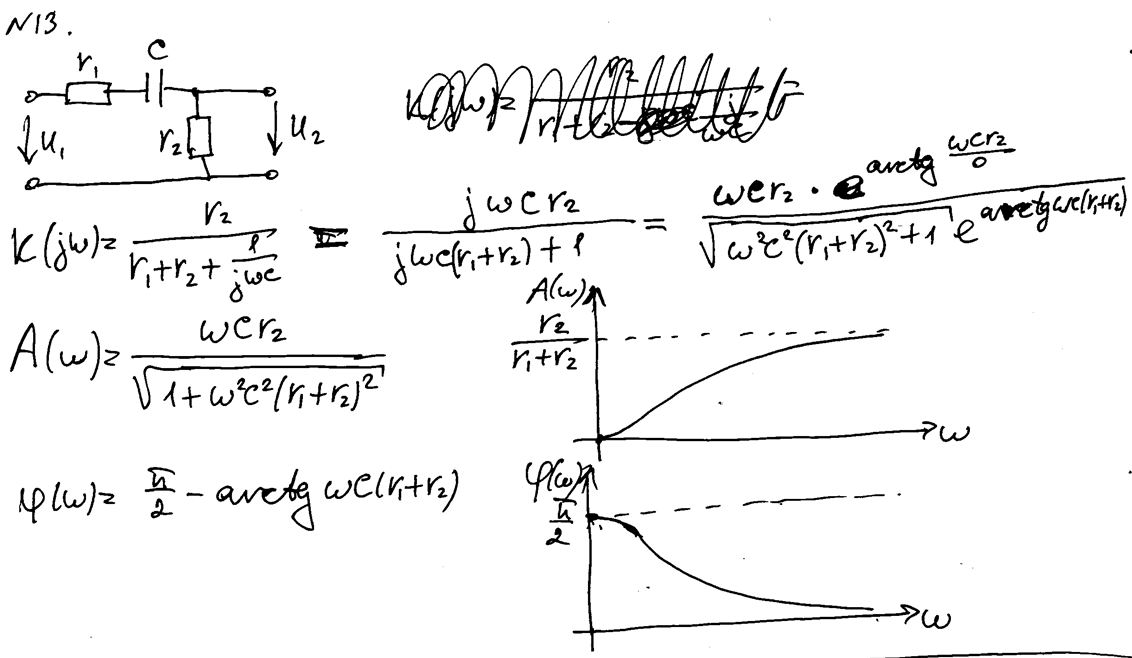 N13.
r₁ C
U₁ r₂ U₂
K(jω)= r₂ / (r₁+r₂+ 1/(jωc)) = jωcr₂ / (jωc(r₁+r₂)+1) = ωcr₂ · e^(arctg ωcr₂/0) / (√(ω²c²(r₁+r₂)²+1) e^(arctg ωc(r₁+r₂)))
A(ω)= ωcr₂ / √(1+ω²c²(r₁+r₂)²)
A(ω)
r₂/(r₁+r₂)
ω
φ(ω)= π/2 - arctg ωc(r₁+r₂)
φ(ω)
π/2
ω